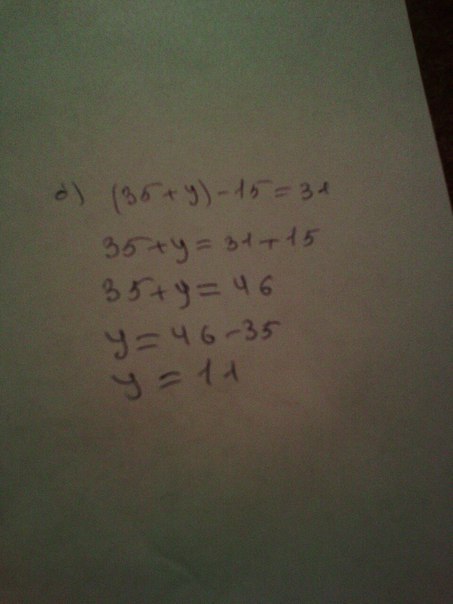 б) (35+у)-15=31
35+у=31+15
35+у=46
у=46-35
у=11